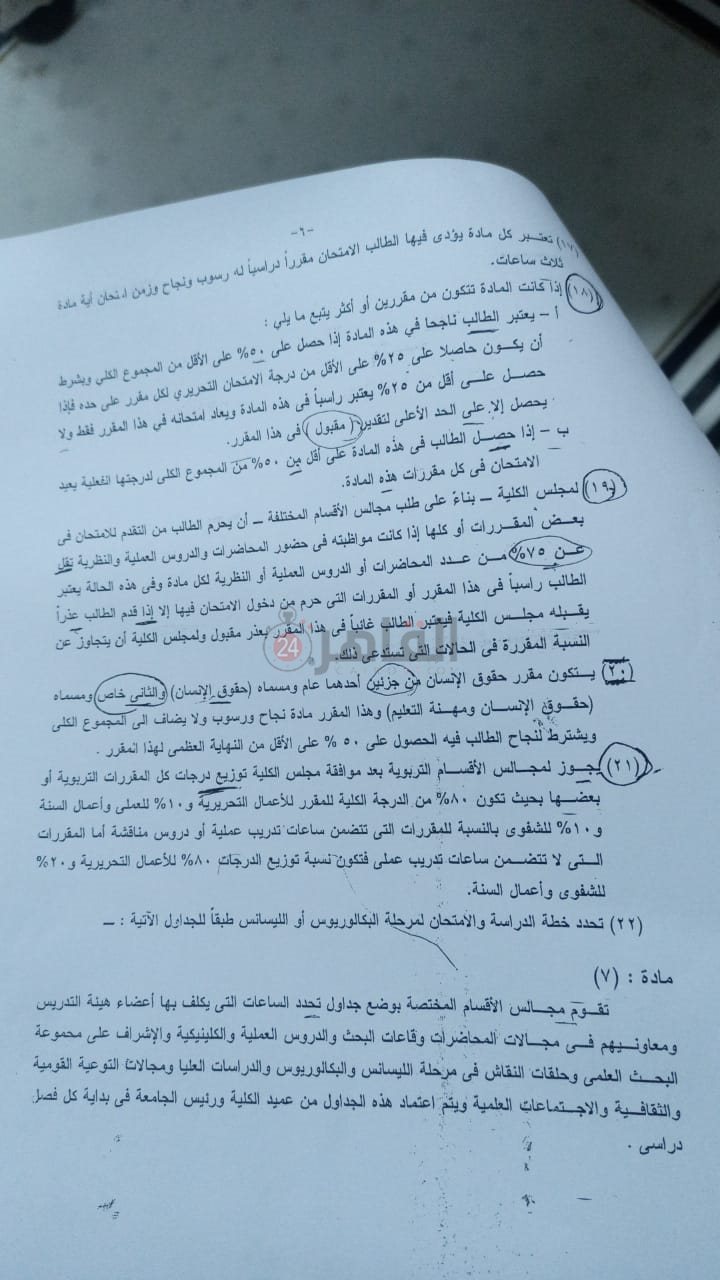 -٦-
(١٧) تعتبر كل مادة يؤدى فيها الطالب الامتحان مقرراً دراسياً له رسوب ونجاح وزمن امتحان أية مادة
ثلاث ساعات.
(١٨) إذا كانت المادة تتكون من مقررين أو أكثر يتبع ما يلي :
أ – يعتبر الطالب ناجحا في هذه المادة إذا حصل على ٥٠% على الأقل من المجموع الكلي ويشرط
أن يكون حاصلا على ٢٥% على الأقل من درجة الامتحان التحريري لكل مقرر على حده فإذا
حصل على أقل من ٢٥% يعتبر راسباً فى هذه المادة ويعاد امتحانه في هذا المقرر فقط ولا
يحصل إلا على الحد الأعلى لتقدير ( مقبول ) فى هذا المقرر.
ب – إذا حصل الطالب فى هذه المادة على أقل من ٥٠% من المجموع الكلى لدرجتها الفعلية يعيد
الامتحان فى كل مقررات هذه المادة.
(١٩) لمجلس الكلية – بناءً على طلب مجالس الأقسام المختلفة – أن يحرم الطالب من التقدم للامتحان فى
بعض المقررات أو كلها إذا كانت مواظبته فى حضور المحاضرات والدروس العملية والنظرية تقل
عن ٧٥% من عدد المحاضرات أو الدروس العملية أو النظرية لكل مادة وفى هذه الحالة يعتبر
الطالب راسباً فى هذا المقرر أو المقررات التى حرم من دخول الامتحان فيها إلا إذا قدم الطالب عذراً
يقبله مجلس الكلية فيعتبر الطالب غائباً فى هذا المقرر بعذر مقبول ولمجلس الكلية أن يتجاوز عن
النسبة المقررة فى الحالات التى تستدعى ذلك.
القاهرة 24
(٢٠) يتكون مقرر حقوق الإنسان من جزئين أحدهما عام ومسماه (حقوق الإنسان) والثانى خاص ومسماه
(حقوق الإنسان ومهنة التعليم) وهذا المقرر مادة نجاح ورسوب ولا يضاف الى المجموع الكلى
ويشترط لنجاح الطالب فيه الحصول على ٥٠ % على الأقل من النهاية العظمى لهذا المقرر .
(٢١) يجوز لمجالس الأقسام التربوية بعد موافقة مجلس الكلية توزيع درجات كل المقررات التربوية أو
بعضها بحيث تكون ٨٠% من الدرجة الكلية للمقرر للأعمال التحريرية و١٠% للعملى وأعمال السنة
و١٠% للشفوى بالنسبة للمقررات التى تتضمن ساعات تدريب عملية أو دروس مناقشة أما المقررات
التى لا تتضمن ساعات تدريب عملى فتكون نسبة توزيع الدرجات ٨٠% للأعمال التحريرية و٢٠%
للشفوى وأعمال السنة.
(٢٢) تحدد خطة الدراسة والامتحان لمرحلة البكالوريوس أو الليسانس طبقاً للجداول الآتية : –
مادة : (٧)
تقوم مجالس الأقسام المختصة بوضع جداول تحدد الساعات التى يكلف بها أعضاء هيئة التدريس
ومعاونيهم فى مجالات المحاضرات وقاعات البحث والدروس العملية والكلينيكية والإشراف على مجموعة
البحث العلمى وحلقات النقاش فى مرحلة الليسانس والبكالوريوس والدراسات العليا ومجالات التوعية القومية
والثقافية والاجتماعات العلمية ويتم اعتماد هذه الجداول من عميد الكلية ورئيس الجامعة فى بداية كل فصل
دراسى .